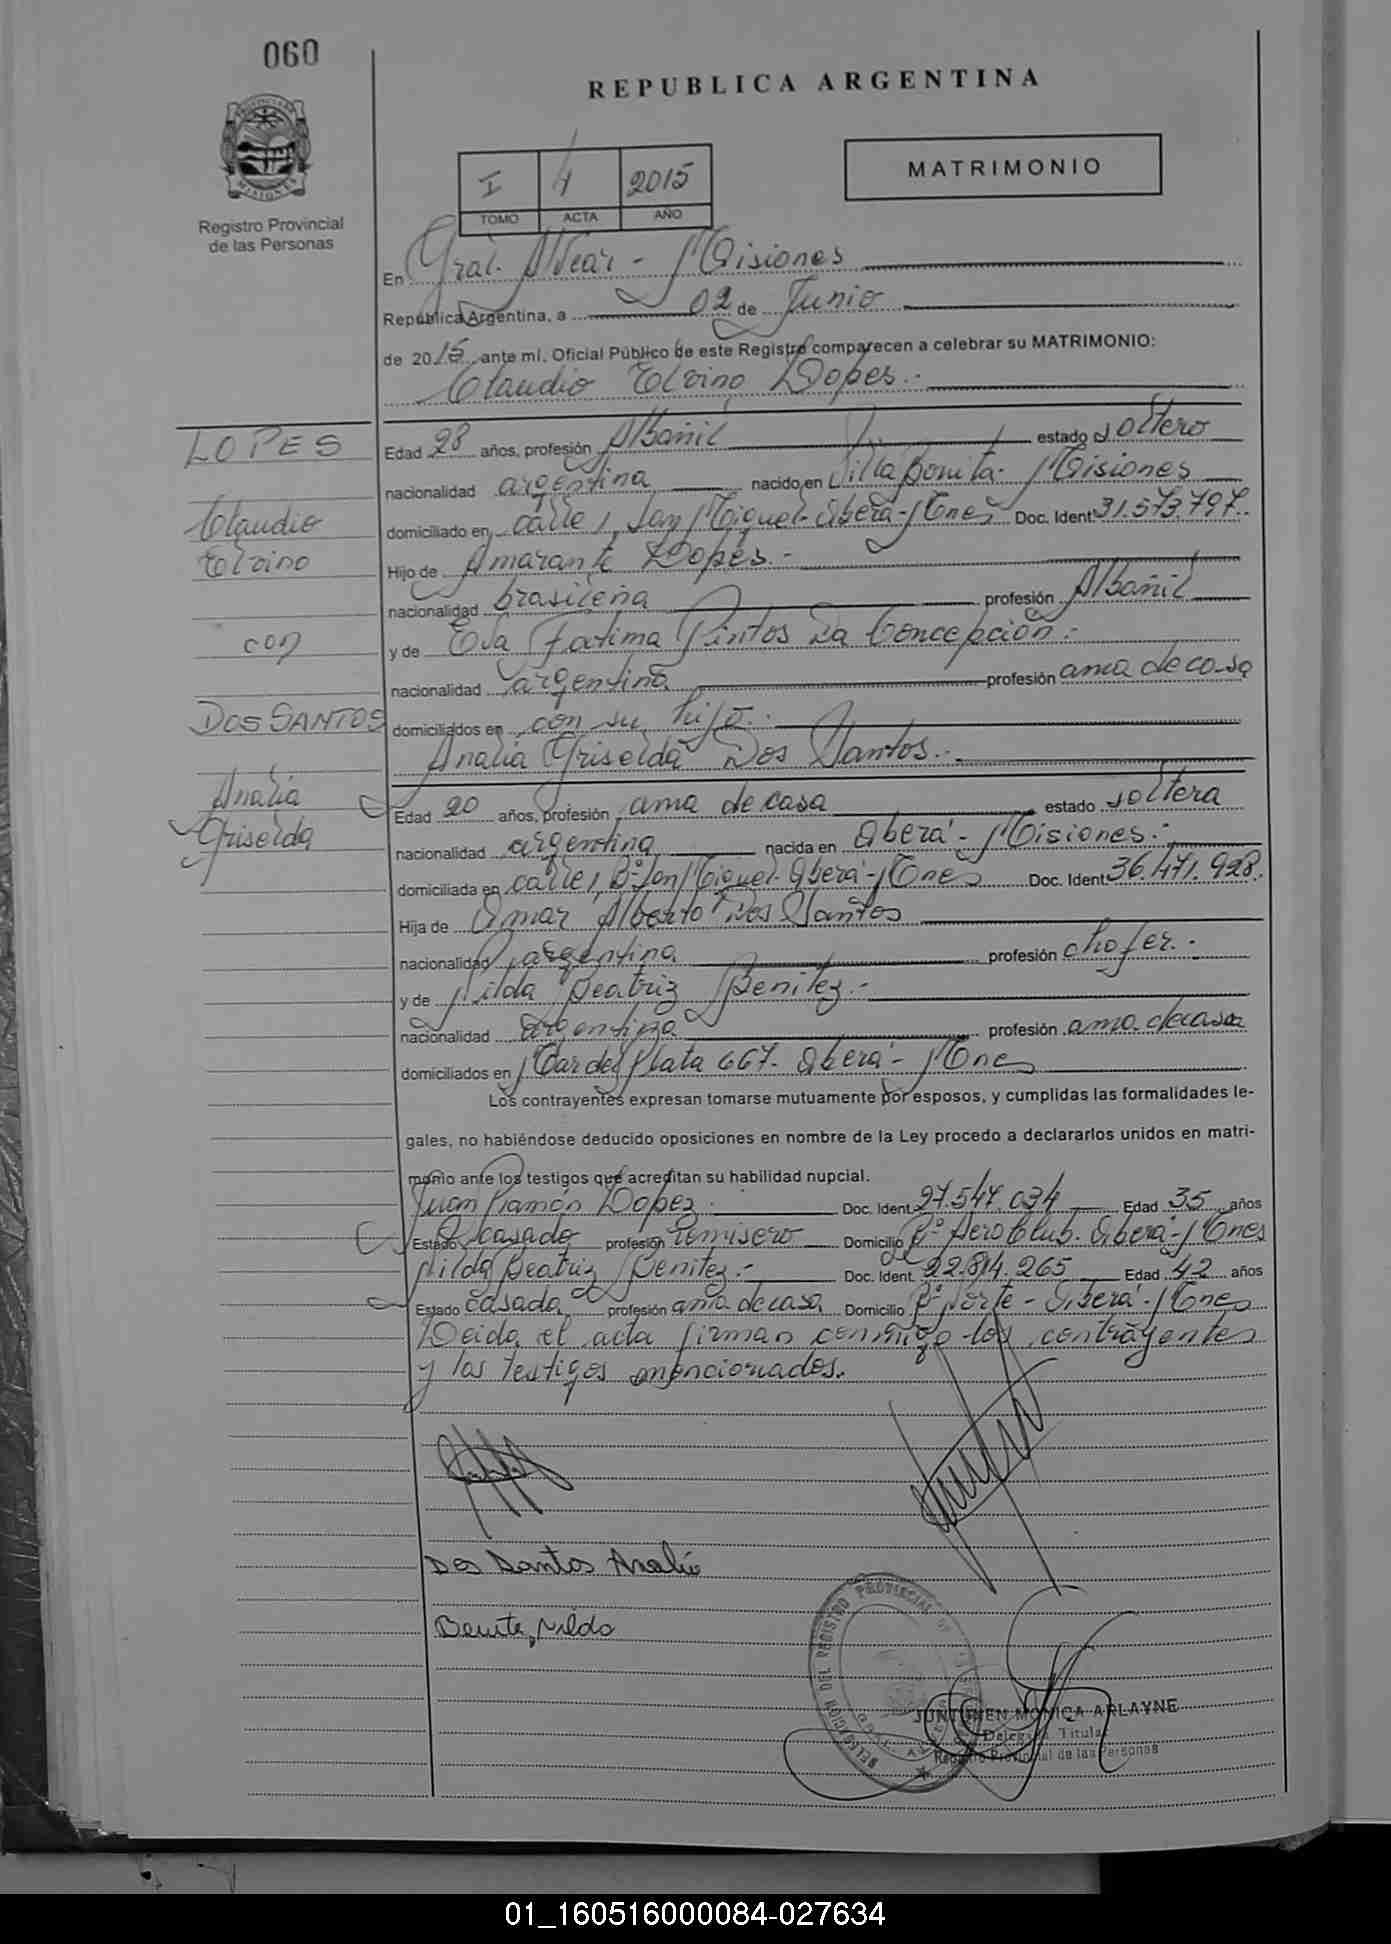 060
REPUBLICA ARGENTINA
MATRIMONIO
I 4 2015
TOMO ACTA AÑO
Registro Provincial
de las Personas
En Gral. Alvear - Misiones
República Argentina, a 02 de Junio
de 2015 ante mí, Oficial Público de este Registro comparecen a celebrar su MATRIMONIO:
Claudio Elvino Lopes.-
LOPES
Claudio
Elvino
con
DOS SANTOS
Analia
Griselda
Edad 28 años, profesión Albañil estado soltero
nacionalidad argentina nacido en Villa Bonita- Misiones
domiciliado en calle 1, San Miguel- Oberá- Mnes Doc. Ident. 31.573.797.
Hijo de Amarante Lopes.-
nacionalidad brasileña profesión Albañil
y de Eva Fatima Pintos Da Concepción.-
nacionalidad argentina profesión ama de casa
domiciliados en con su hijo.-
Analia Griselda Dos Santos.-
Edad 20 años, profesión ama de casa estado soltera
nacionalidad argentina nacida en Oberá - Misiones.-
domiciliada en calle 1, Bº San Miguel- Oberá- Mnes Doc. Ident. 36.471.928.
Hija de Omar Alberto Dos Santos
nacionalidad argentina profesión chofer.-
y de Nilda Beatriz Benitez.-
nacionalidad argentina profesión ama de casa
domiciliados en Mar del Plata 667- Oberá - Mnes
Los contrayentes expresan tomarse mutuamente por esposos, y cumplidas las formalidades le-
gales, no habiéndose deducido oposiciones en nombre de la Ley procedo a declararlos unidos en matri-
monio ante los testigos que acreditan su habilidad nupcial.
Juan Ramón Lopez Doc. Ident. 27.547.034 Edad 35 años
Estado casado profesión remisero Domicilio Bº Aero Club. Oberá- Mnes
Nilda Beatriz Benitez.- Doc. Ident. 22.814.265 Edad 42 años
Estado casada profesión ama de casa Domicilio Bº Norte - Oberá - Mnes
Leida el acta firman conmigo los contrayentes
y los testigos mencionados.
Dos Santos Analia
Benitez Nilda
JUNTUNEN MONICA ARLAYNE
Delegada Titular
Registro Provincial de las Personas
01_160516000084-027634